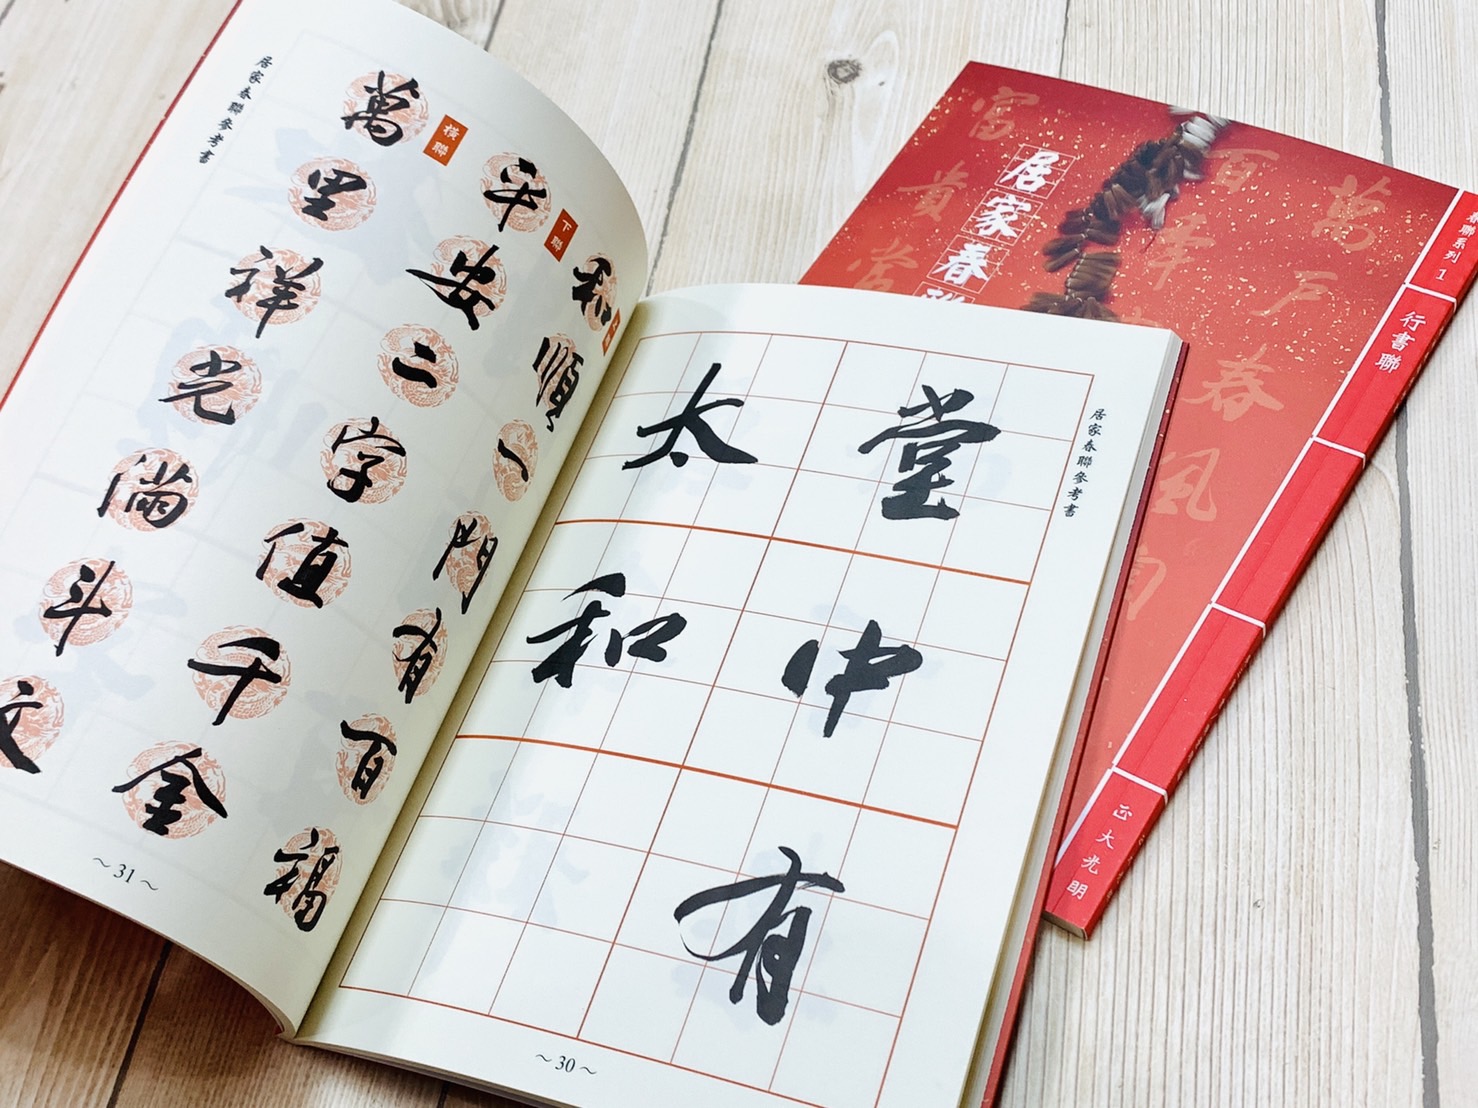 居家春聯參考書
堂中有
太和
~30~
和順一門有百福
下聯
平安二字值千金
橫聯
萬里祥光滿斗文
居家春聯參考書
~31~
居家春
萬戶春風
百年
富貴堂
春聯系列 1
行書聯
正大光明